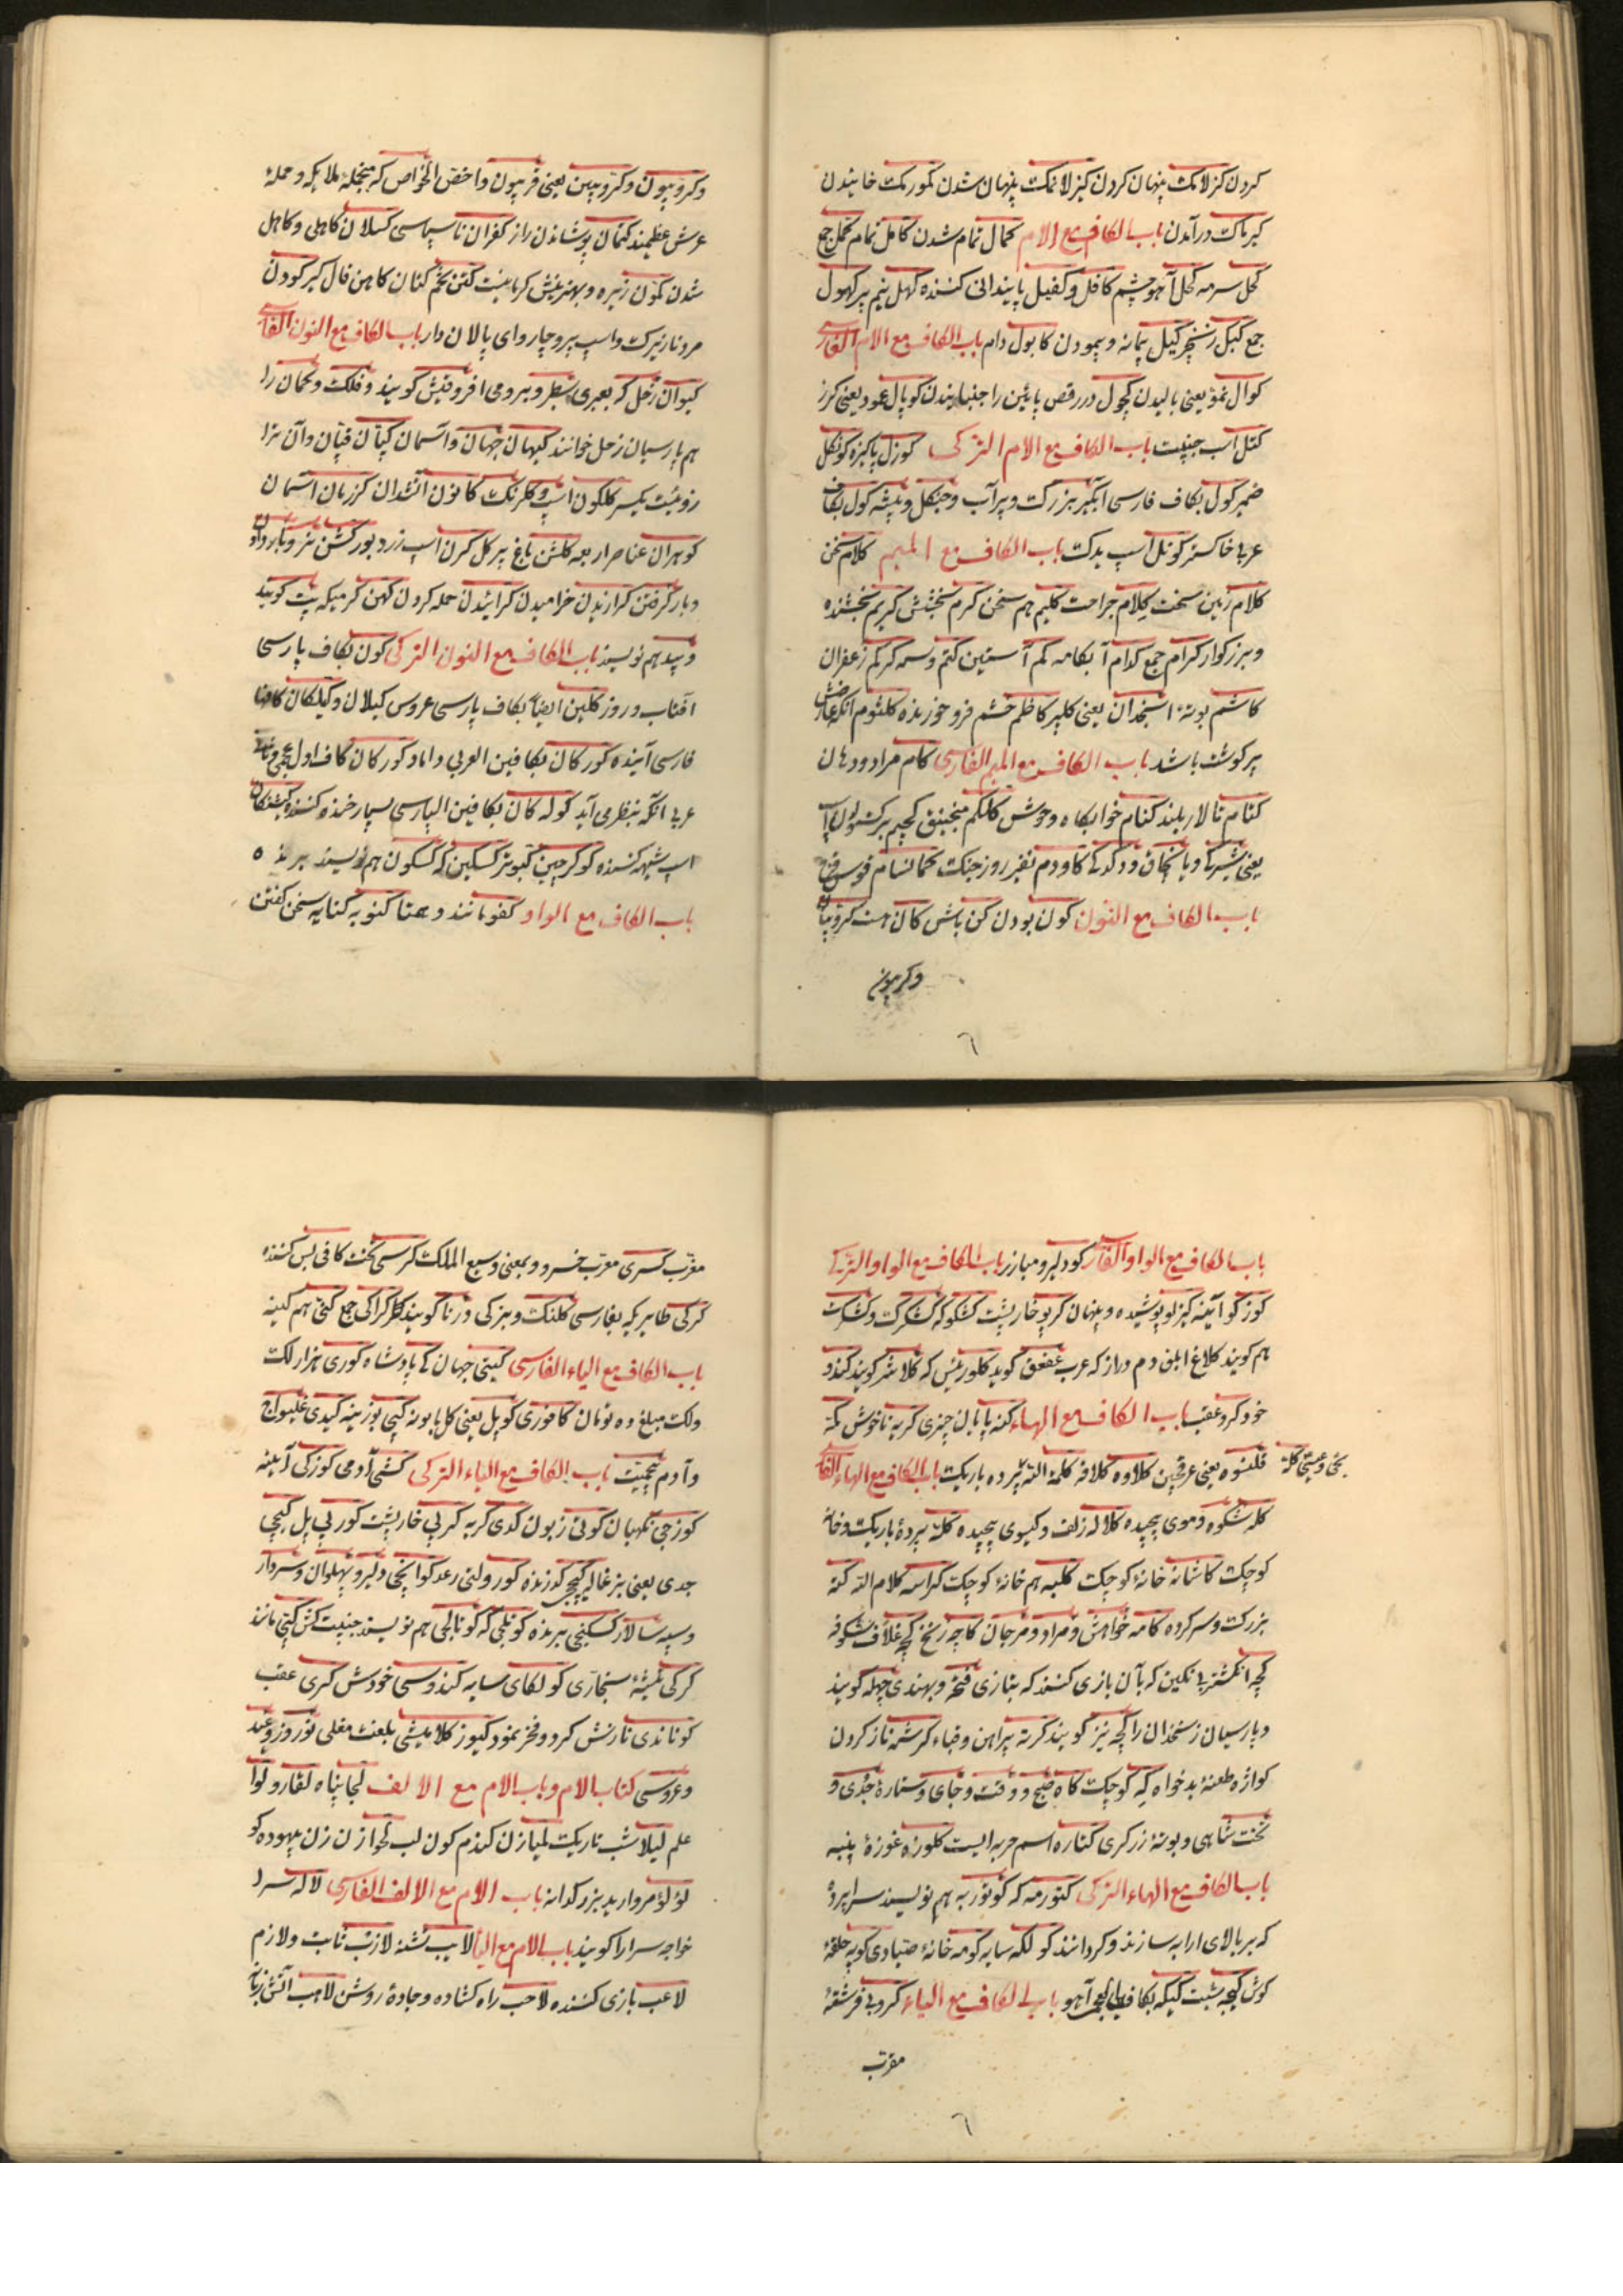 کردن کزلامک پنهان کردن کیزلانمک پنهان شدن کمورمک خاییدن
کیرماک درآمدن باب الکاف مع الام کمال تمام شدن کامل تمام کمل جمع
کحل سرمه کحل آهو چشم کافل و کفیل پایندانی کننده کهل نیم پیر کهول
جمع کبل زنجیر کیل پیمانه و پیمودن کابول دام باب الکاف مع الام الفارسی
کوال نمو یعنی بالیدن کچول در رقص پائین را جنبانیدن کوپال عمود یعنی کرز
کتل اسب جنیبت باب الکاف مع الام الترکی کوزل پاکیزه کونکل
ضمیر کول بکاف فارسی آبکیر بزرکت و پرآب و جنکل و بیشه کول بکاف
عربی خاکستر کوتل اسب یدک باب الکاف مع المیم کلام سخن
کلام زمین سخت کلام جراحت کلیم هم سخن کرم بخشش کریم بخشنده
و بزرکوار کرام جمع کدام آبکامه کم آستین کتم وسمه کرکم زعفران
کاشم بوته انجدان یعنی کلپر کاظم خشم فرو خورنده کلثوم آنکه عارض
پر کوشت باشد باب الکاف مع المیم الفارسی کام مراد و دهان
کنام تالار بلند کنام خوابکاه وحوش کلکم منجنیق کجیم برکستوان اسب
باب الکاف مع النون کون بودن کن باش کان هست کروبیان
وکروبیون
وکروبیون وکروبیین یعنی قربیون و اخص الخواص که منجمله ملایکه و حمله
عرش عظیمند کتمان پوشاندن راز کفران ناسپاسی کسلان کاهلی و کاهل
شدن کمون زیره و بهترینش کرمانیست کتن تخم کتان کاهن فال کیر کودن
مرد نازیرک و اسب پیر و چاروای پالان دار باب الکاف مع النون الفارسی
کیوان زحل که بعبری و برومی افرونیش کویند و فلک و کمان را
هم پارسیان زحل خوانند کیهان جهان و آسمان کپان قپان و آن ترا
زوئیست یکسر کلکون اسب و کلرنک کانون آتشدان کرزمان آسمان
کوهران عناصر اربعه کلشن باغ پرکل کرن اسب زرد بور
و بار کرفتن کرازیدن خرامیدن کرائیدن حمله کردن کهن کرمیکه پت کویند
و بید هم نویسند باب الکاف مع النون الترکی کون بکاف پارسی
آفتاب و روز کلین ایضا بکاف پارسی عروس کیلان و کیلکان
فارسی آینده کورکان بکافین العربی داماد کورکان کاف اول عجمی
عربی آنکه بنظر می آید کوله کان بکافین الپارسی بسیار خنده کننده
اسب شیهه کننده کوکرجین کبوتر کسکین که کسکون هم نویسند برنده
باب الکاف مع الواو کفو مانند و همتا کنو به کنایه سخن کفتن
باب الکاف مع الواو الفارسی کو دلیر و مبارز باب الکاف مع الواو الترکی
کوزکو آینه کیزلو پوشیده و پنهان کرپو خارپشت کشکو که کشکرک و کشکرت
هم کویند کلاغ ابلق دم دراز که عرب عقعق کوید کلو رئیس که کلانتر کویند کندو
خود کرو عقب باب الکاف مع الهاء کنه پایان چیزی کریه ناخوش مکه
قلنسوه یعنی عرقچین کلاوه کلافه کلمة الله پرده باریک باب الکاف مع الهاء الفارسی
کله شکوه و موی پیچیده کلاله زلف و کیسوی پیچیده کله پرده باریک و خانه
کوچک کاشانه خانه کوچک کلبه هم خانه کوچک کراسه کلام الله کنه
بزرک و سرکرده کامه خواهش و مراد و مرجان کاچه زنخ کچه غلاف شکوفه
کچه انکشتر بی نکین که بآن بازی کنند که بتازی فتخه و بهندی چهله کویند
و پارسیان زنخدان را کچه نیز کویند کرته پیراهن و قباء کرشمه ناز کردن
کوازه طعنه بدخواه که کوچک کاه صبح و وقت و جای و ستاره جدی و
تخت شاهی و بوته زرکری کتاره اسم حربه ایست کلوزه غوزه پنبه
باب الکاف مع الهاء الترکی کتورمه که کوتوریه هم نویسند سراپرده
که بر بالای ارابه سازند و کردانند کولکه سایه کومه خانه صیادی کوپه حلقه
کوش کیجه شب کیکه آهو باب الکاف مع الیاء کروبی فرشته
مقرب
مقرب کسری معرب خسرو و بمعنی وسیع الملک کرسی تخت کافی بس کننده
کرکی طایریکه بفارسی کلنک و بترکی درنا کویند کراکی جمع کنی هم کنیه
باب الکاف مع الیاء الفارسی کیتی جهان کی پادشاه کوری هزار لک
و لک مبلغ ده تومان کافوری کوپل یعنی کل بابونه کپی بوزینه کیدی غلیواج
و آدم بیحمیت باب الکاف مع الیاء الترکی کشی آدمی کوزکی آینه
کوزجی نکهبان کونی زبون کدی کربه کرپی خارپشت کورپی پل کیچی
جدی یعنی بزغاله کیچی کدرنده کورولتی رعد کوانجی دلیر و پهلوان و سردار
و سپه سالار کسکنجی برنده کوتلجی که کوتالجی هم نویسند جنیبت کش کبی مانند
کرکی تیشه نجاری کولکای سایه کندوسی خودش کری عقب
کوناندی نازش کرد و فخر نمود کیور کلامیشی بلغت مغلی نوروز و عید
و عروسی کتاب الام و باب الام مع الالف لجا پناه لقا رو لوا
علم لیلا شب تاریک لمیا زن کندم کون لب لخوا زن
لؤلؤ مروارید بزرکدانه باب الام مع الالف الفارسی لالا سرا
خواجه سرا را کویند باب الام مع الباء لایب تشنه لازب ثابت و لازم
لاعب بازی کننده لاحب راه کشاده و جاده روشن لاهب آتش زبانه